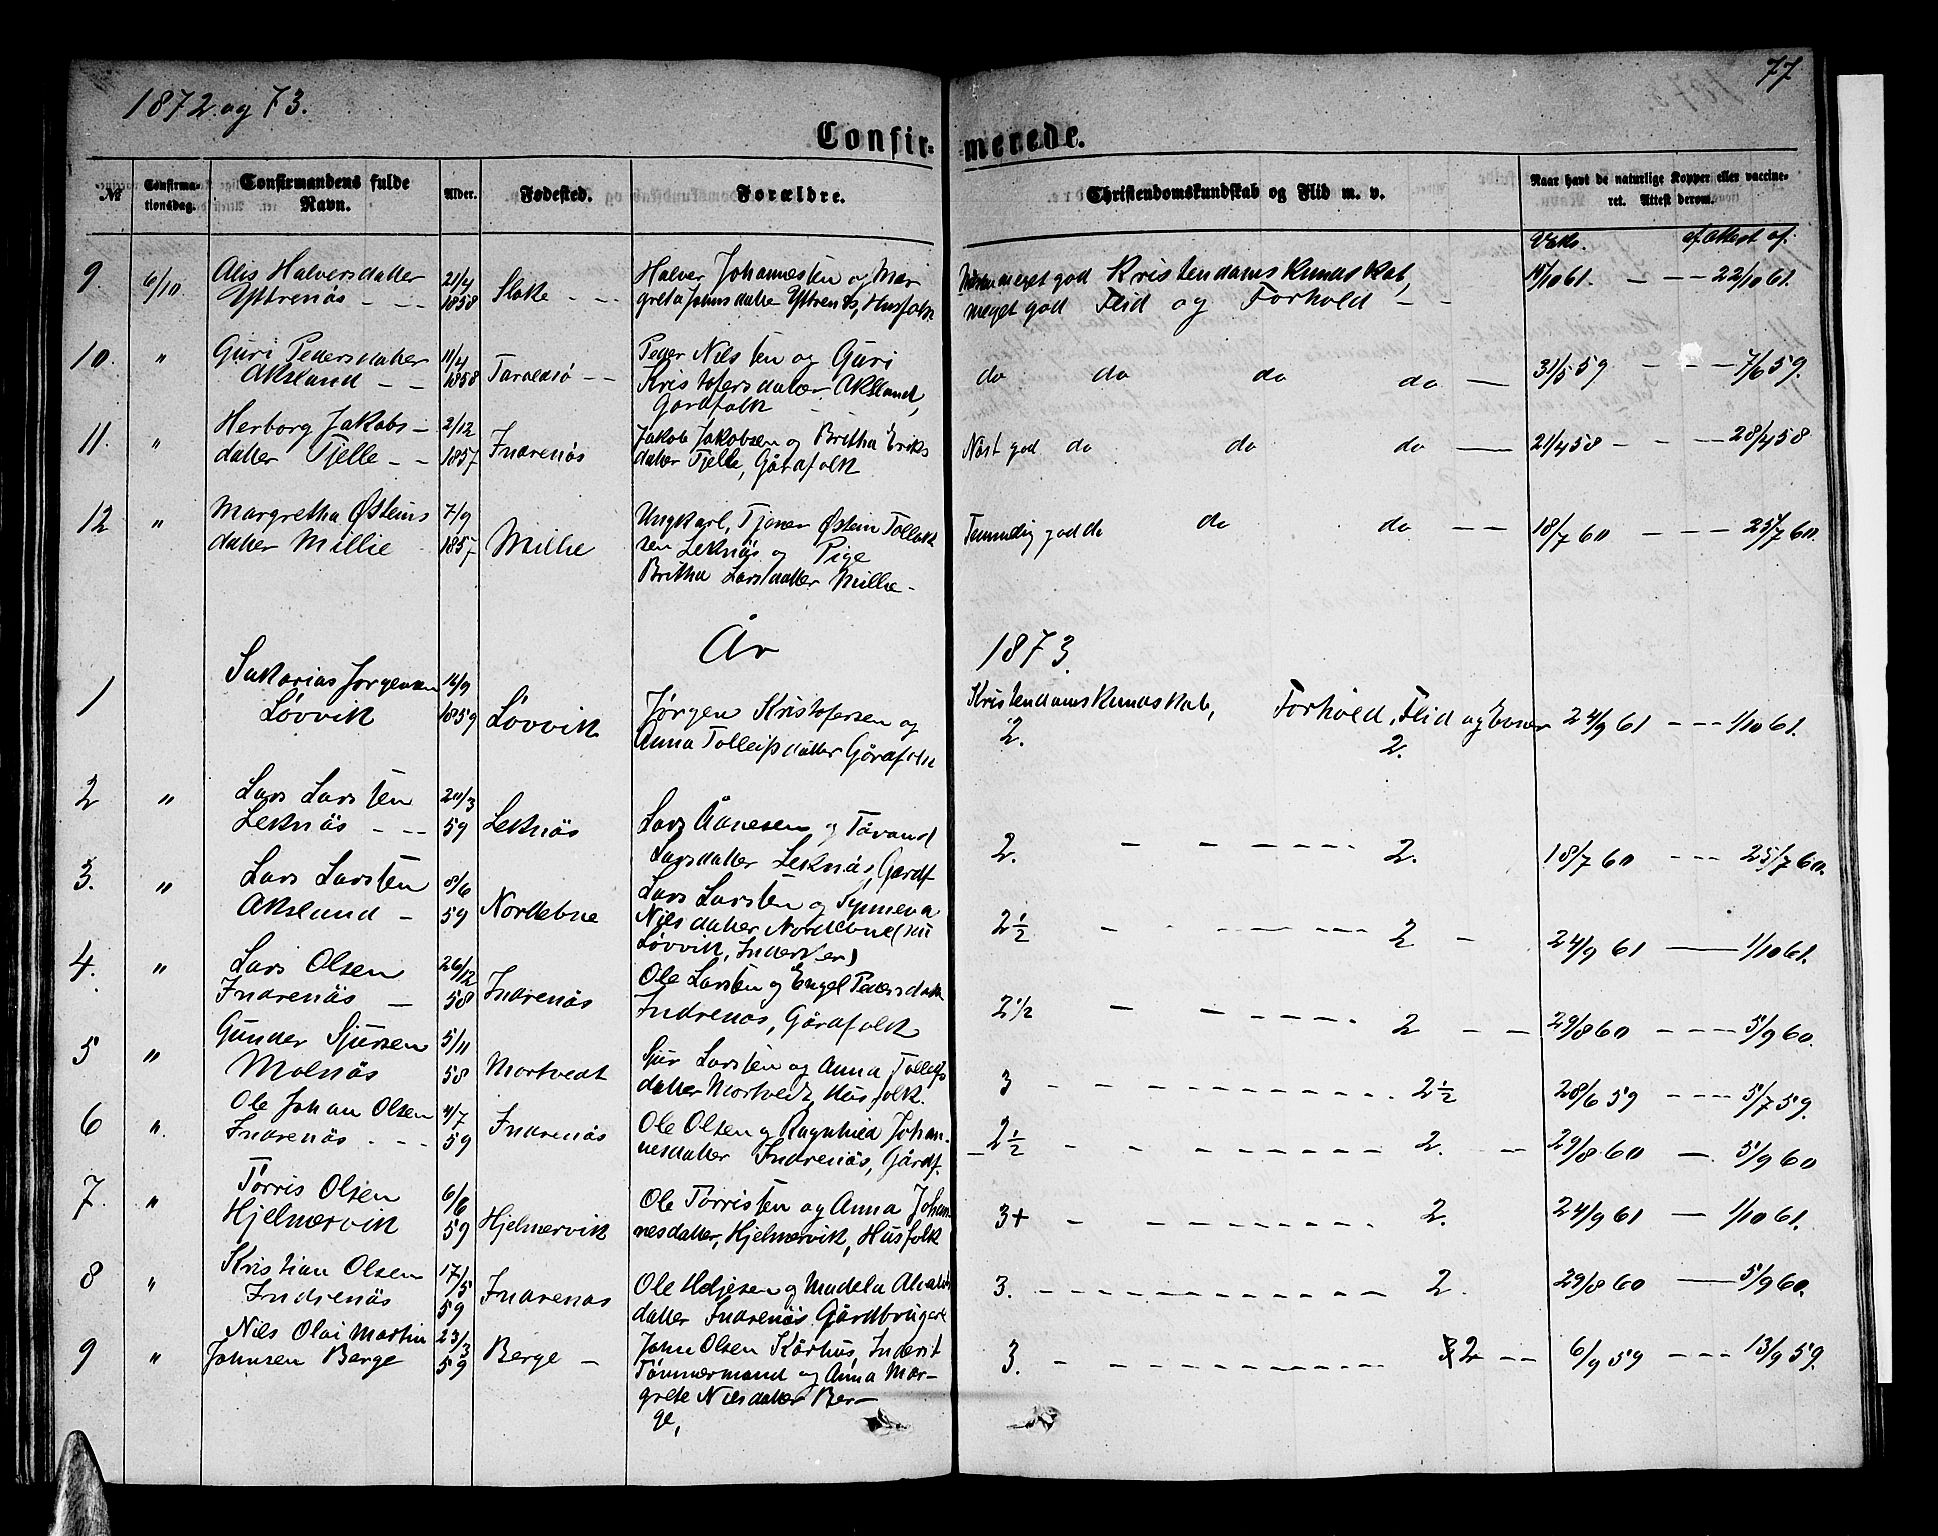 1872 og 73.
77
Confirmerede.
№
Confirmationsdag.
Confirmandens fulde Navn.
Alder.
Fødested.
Forældre.
Christendomskundskab og Flid m. v.
Naar havt de naturlige Kopper eller vaccineret. Attest derom.
af Attest af.
9. 6/10 Alis Halversdatter 21/4 Halver Johannessen og Mar
Yttrenäs - - - 1858 Sloke - - greta Johnsdatter Yttrenäs, Husfolk
meget god Kristendomskundskab, 15/10 61. - - - 22/10 61.
meget god Flid og Forhold - -
10. " Guri Pedersdatter 11/4 Peder Nilssen og Guri
Aksland - - 1858 - - Kristofersdatter Aksland,
Gårdfolk
do do do do — 31/5 59 - - - 7/6 59.
11. " Herborg Jakobs- 2/12 Jakob Jakobsen og Britha Eriks
datter Tjelle - - 1857 Indrenäs datter Tjelle, Gårdfolk
Näst god do do do — 21/4 58 - - - 28/4 58
12 " Margretha Østeins 7/9 Ungkarl, Tjener Østein Tollak
datter Millie 1857 Millie sen Leknäs og Pige
Britha Larsdatter Millie -
Temmelig god do do do - - 18/7 60 - - - 25/7 60.
År 1873.
1 Sakarias Jørgensen 16/9
Løvvik 1859 Løvvik Jørgen Kristofersen og
Anna Tolleifsdatter Gårdfolk
Kristendomskundskab, Forhold, Flid og 24/9 61 - - - 1/10 61.
2. 2.
2 " Lars Larssen 20/3
Leknäs - - - 59 Leknäs Lars Äånesen og
Larsdatter Leknäs, Gårdf
2. - - - - - 2. 18/7 60 - - - 25/7 60.
3. " Lars Larssen 8/6 Lars Larssen og Synneva
Aksland - 59 Nordebne Nilsdatter Nordebne (nu
Løvvik, Inderster)
2½ - - - - - 2 - 24/9 61 — 1/10 61.
4. " Lars Olsen 26/12 Ole Larssen og Engel Pedersdatter
Indrenäs - 58 Indrenäs Indrenäs, Gårdfolk
2½ - - - - - 2 - - 29/8 60 - - - 5/9 60.
5 " Gunder Sjursen 5/11 Sjur Larssen og Anna Tolleifs
Molnäs 58 Mortvedt datter Mortvedt, Husfolk.
3 - - - - - 2½ 28/6 59 - - - 5/7 59.
6 " Ole Johan Olsen 4/7 Ole Olsen og Ragnhild Johan-
Indrenäs - - - 59 Indrenäs nesdatter Indrenäs, Gårdf.
2½ - - - - - 2. - 29/8 60 - 5/9 60
7. " Tørris Olsen 6/6 Ole Tørrissen og Anna Johan-
Hjelmervik 59 Hjelmervik nesdatter, Hjelmervik, Husfolk
3+ - - - - - 2. 24/9 61 - 1/10 61.
8 " Kristian Olsen 17/5 Ole Heljesen og Madela
Indrenäs 59 Indrenäs datter Indrenäs Gårdbrugere
3. - - - - - 2. 29/8 60 — 5/9 60.
9 " Nils Olai Martin 23/3 John Olsen Kårhus, Inderst
Johnsen Berge 59 Berge - Tømmermand og Anna Mar-
grete Nilsdatter Ber-
ge,
3. - - - - - 2 - - 6/9 59 - - - 13/9 59.